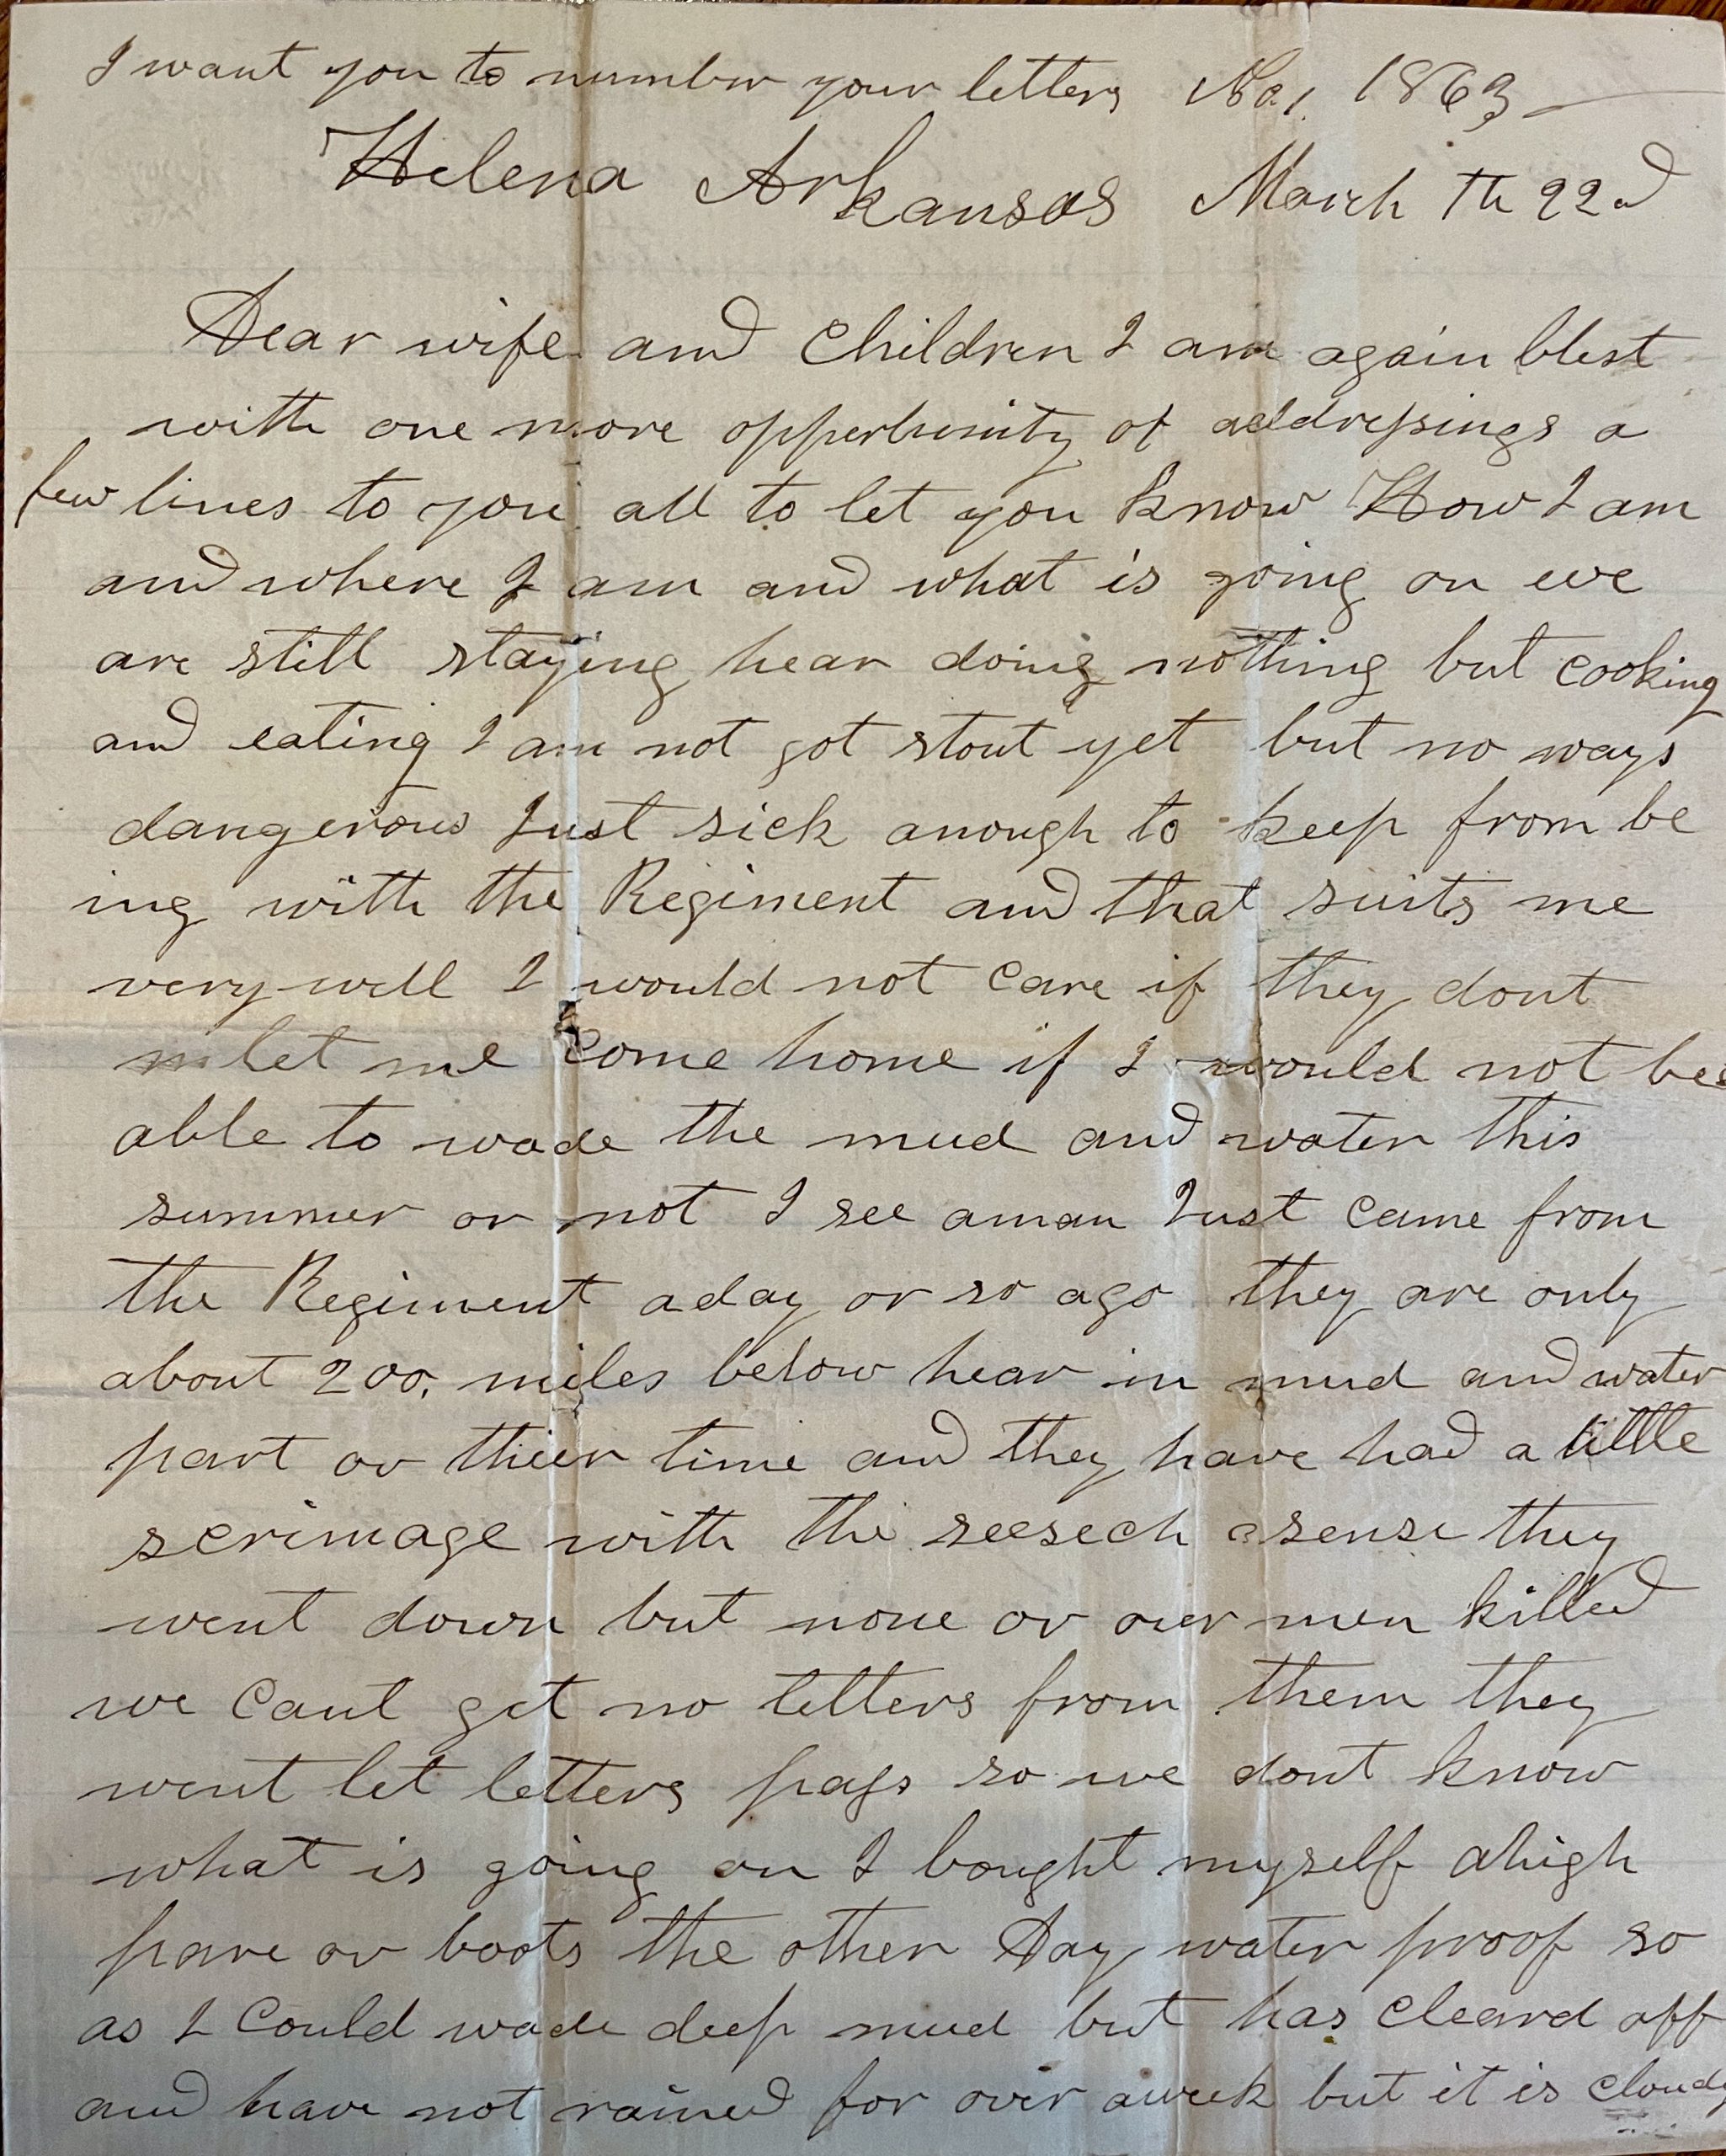 I want you to number your letters No 1. 1863
Helena Arkansas March th 22nd
Dear wife and Children I am again blest
with one more oppertunity of addressings a
few lines to you all to let you know How I am
and where I am and what is going on we
are still staying hear doing nothing but cooking
and eating I am not got stout yet but no ways
dangerous Just sick anough to keep from be
ing with the Regiment and that suits me
very well I would not care if they dont
let me come home if I would not bee
able to wade the mud and water this
summer or not I see aman Just came from
the Regiment aday or so ago they are only
about 200. miles below hear in mud and water
part ov thier time and they have had a little
scrimage with the seesech asense they
went down but none ov our men killed
we cant get no letters from them they
wont let letters pass so we dont know
what is going on I bought myself ahigh
pare ov boots the other Day water proof so
as I could wade deep mud but has cleard off
and have not rained for over aweek but it is cloudy